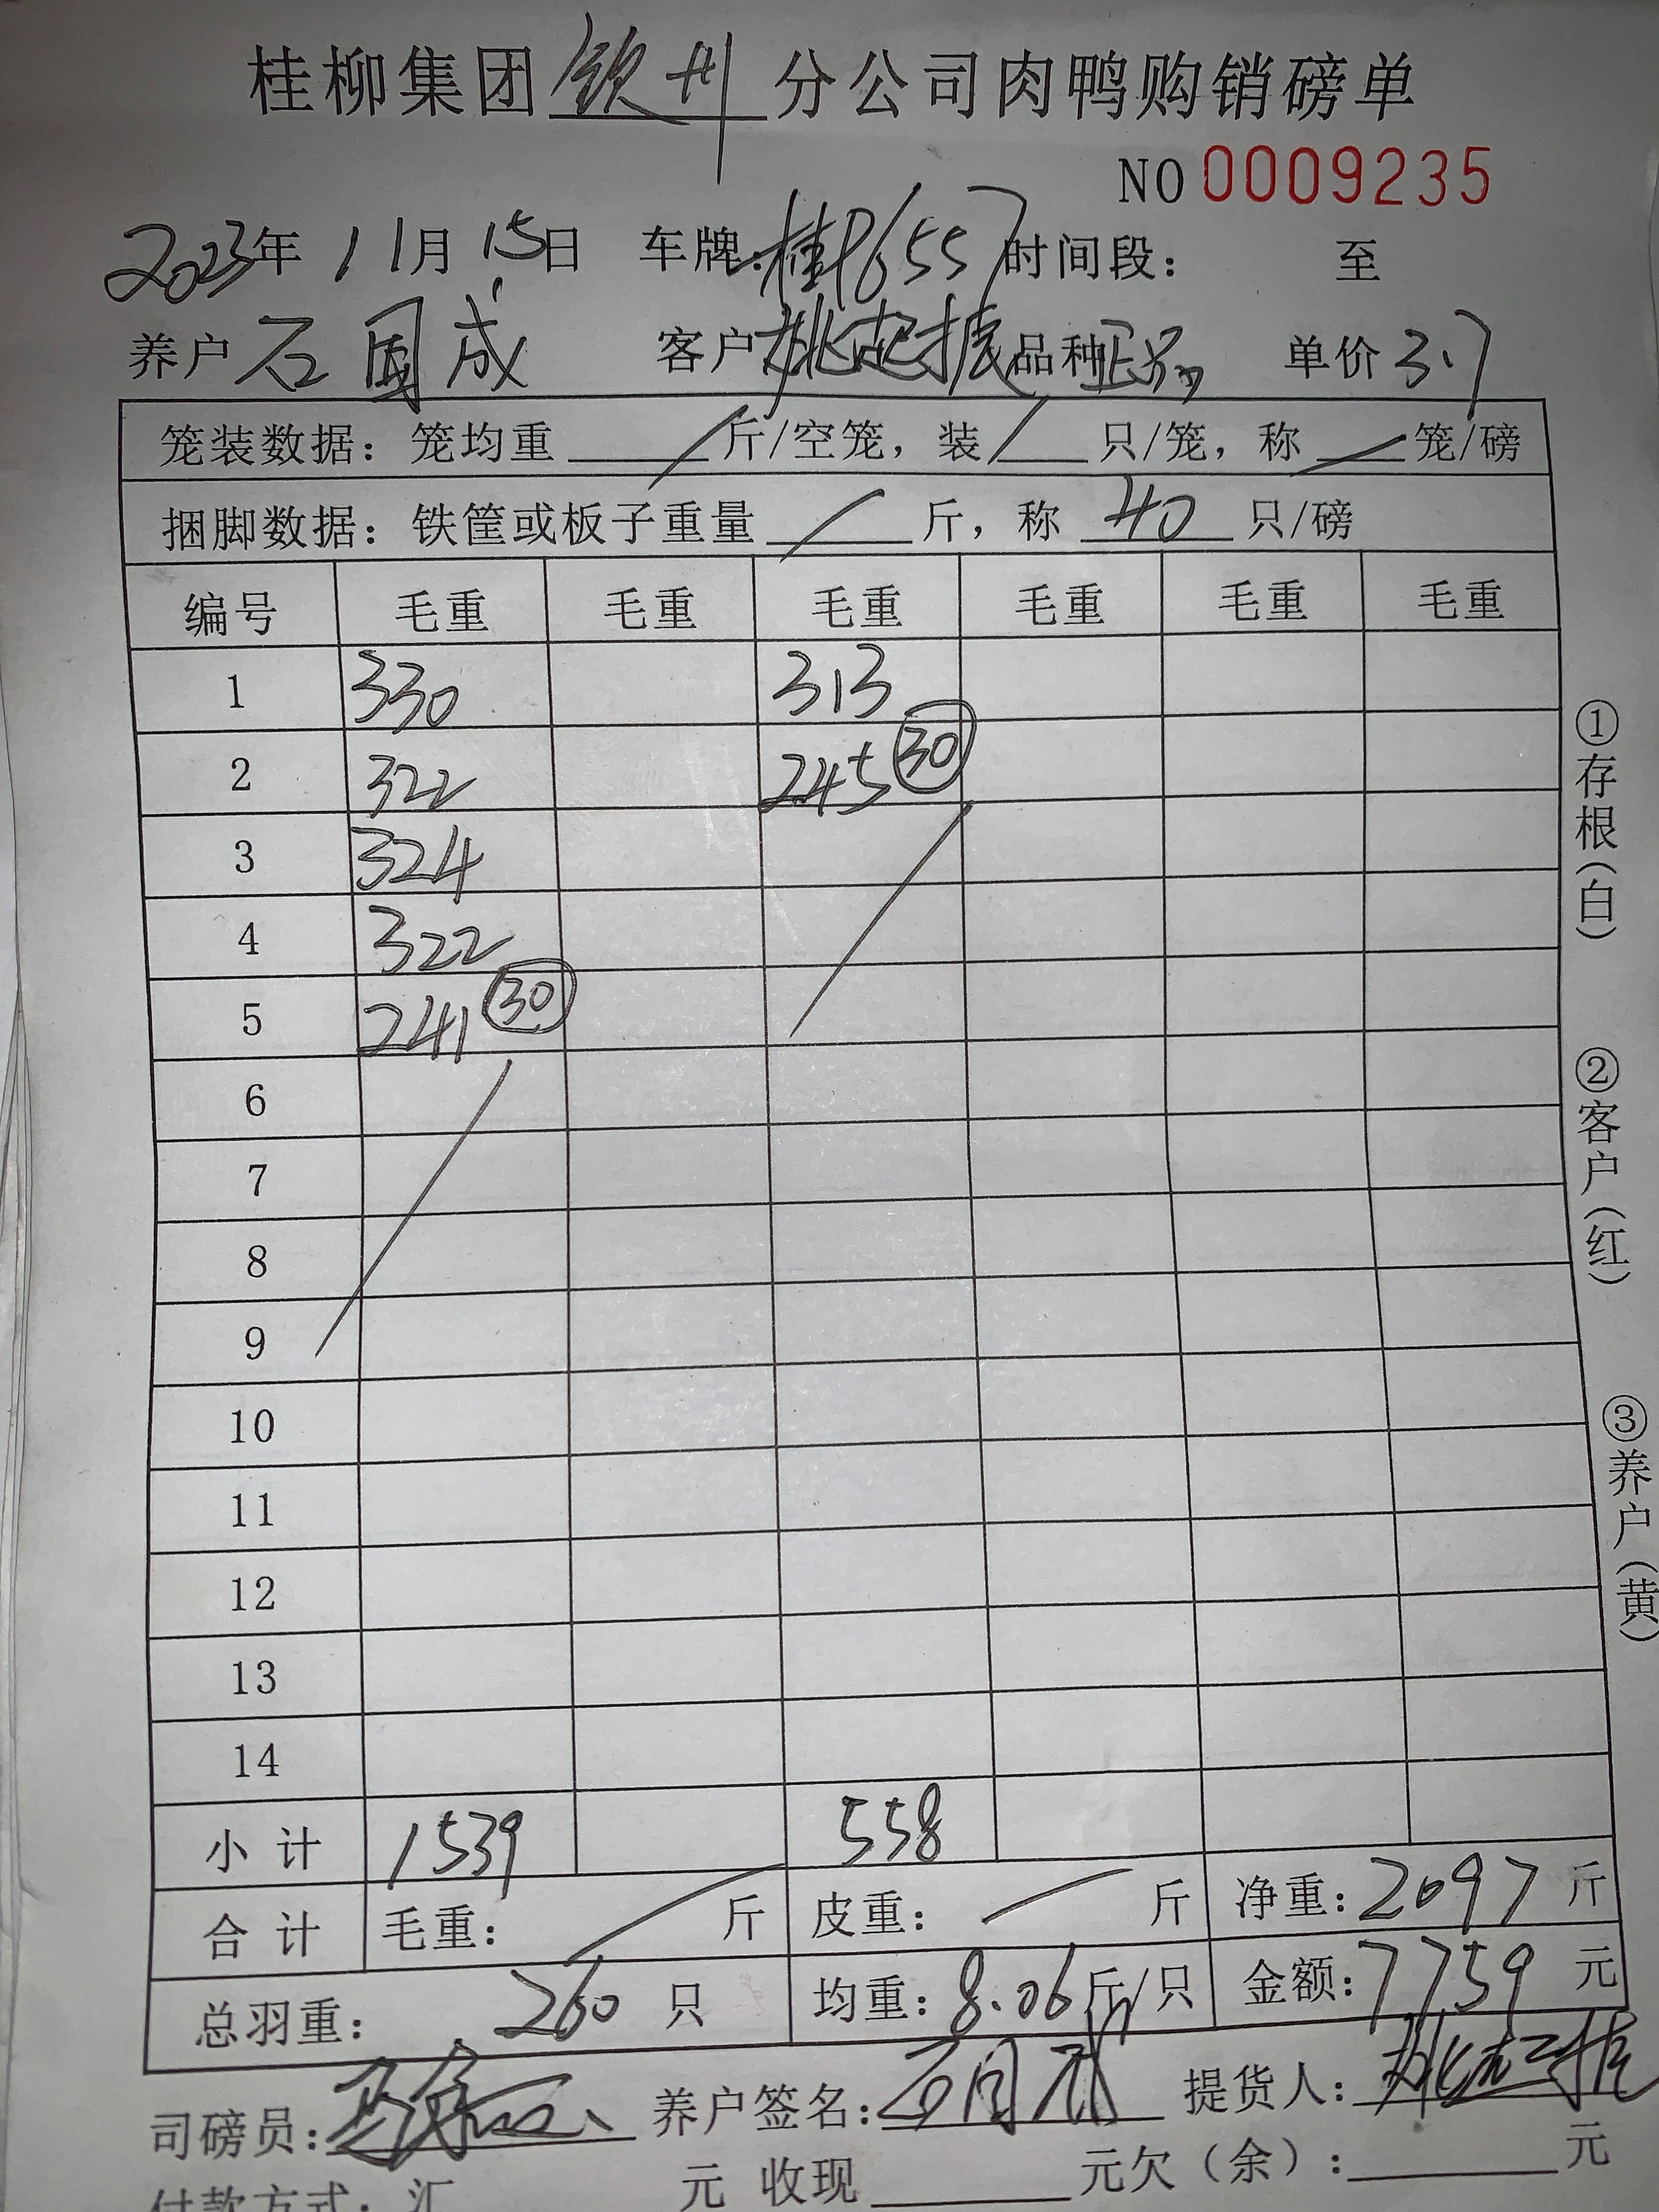 桂柳集团钦州分公司肉鸭购销磅单
NO 0009235
2023年 11月 15日 车牌:桂P6557 时间段: 至
养户 石国成 客户 姚起振 品种 正品 单价 3.7
笼装数据: 笼均重 斤/空笼, 装 只/笼, 称 笼/磅
捆脚数据: 铁筐或板子重量 斤, 称 40 只/磅
编号 毛重 毛重 毛重 毛重 毛重 毛重
1 330 313
2 322 245 30
3 324
4 322
5 241 30
6
7
8
9
10
11
12
13
14
小计 1539 558
合计 毛重: 斤 皮重: 斤 净重: 2097 斤
总羽重: 260 只 均重: 8.06 斤/只 金额: 7759 元
司磅员: 养户签名: 石国成 提货人: 姚起振
付款方式: 汇 元 收现 元欠(余): 元
①存根(白)
②客户(红)
③养户(黄)